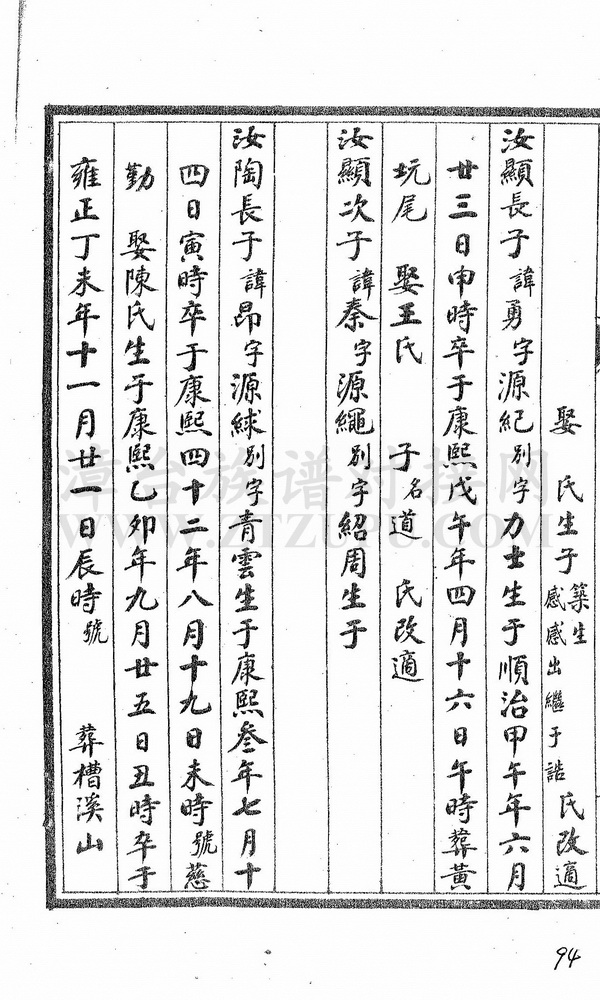 娶 氏生子築生感感出繼于誥 氏改適
汝顯長子諱勇字源紀别字力士生于順治甲午年六月
廿三日申時卒于康熙戊午年四月十六日午時葬黃
坑尾 娶王氏 子名道 氏改適
汝顯次子諱秦字源繩别字紹周生于
汝陶長子諱昂字源絿别字青雲生于康熙叁年七月十
四日寅時卒于康熙四十二年八月十九日未時號慈
勤 娶陳氏生于康熙乙卯年九月廿五日丑時卒于
雍正丁未年十一月廿一日辰時號 葬槽溪山
漳台族谱对接网
WWW.ZTZUPU.COM
94